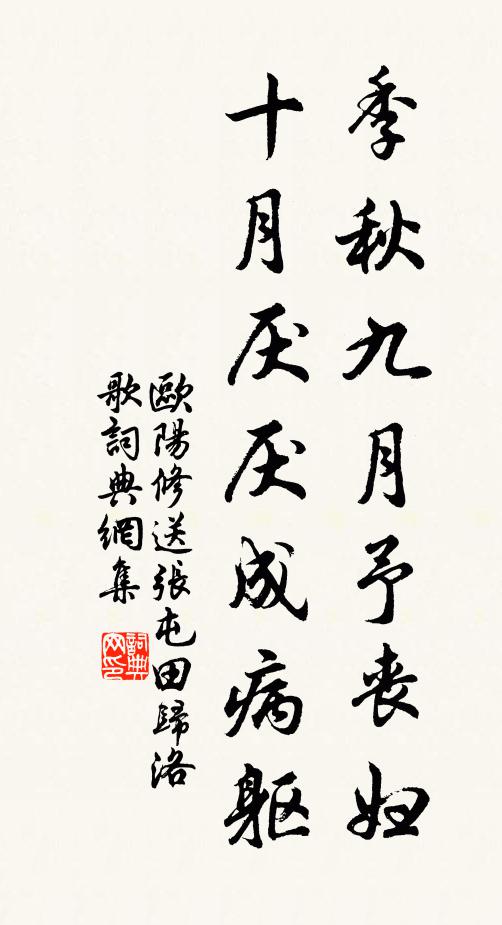 季秋九月予丧妇
十月厌厌成病躯
歐陽修送張屯田歸洛
歌詞典網集
詞典网印